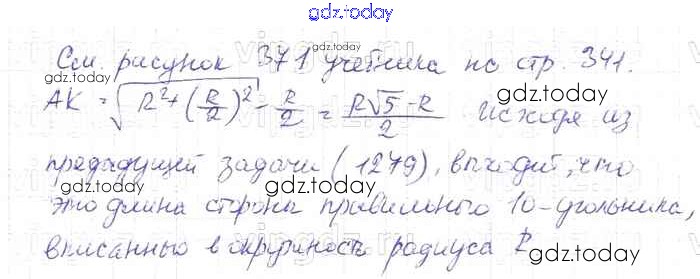 gdz.today
См. рисунок 371 учебника на стр. 341.
gdz.today
AK = √(R² + (R/2)²) - R/2 = (R√5 - R)/2 Исходя из
gdz.today
предыдущей задачи (1279), выходит, что
gdz.today
это длина стороны правильного 10-угольника,
gdz.today
вписанного в окружность радиуса R
gdz.today